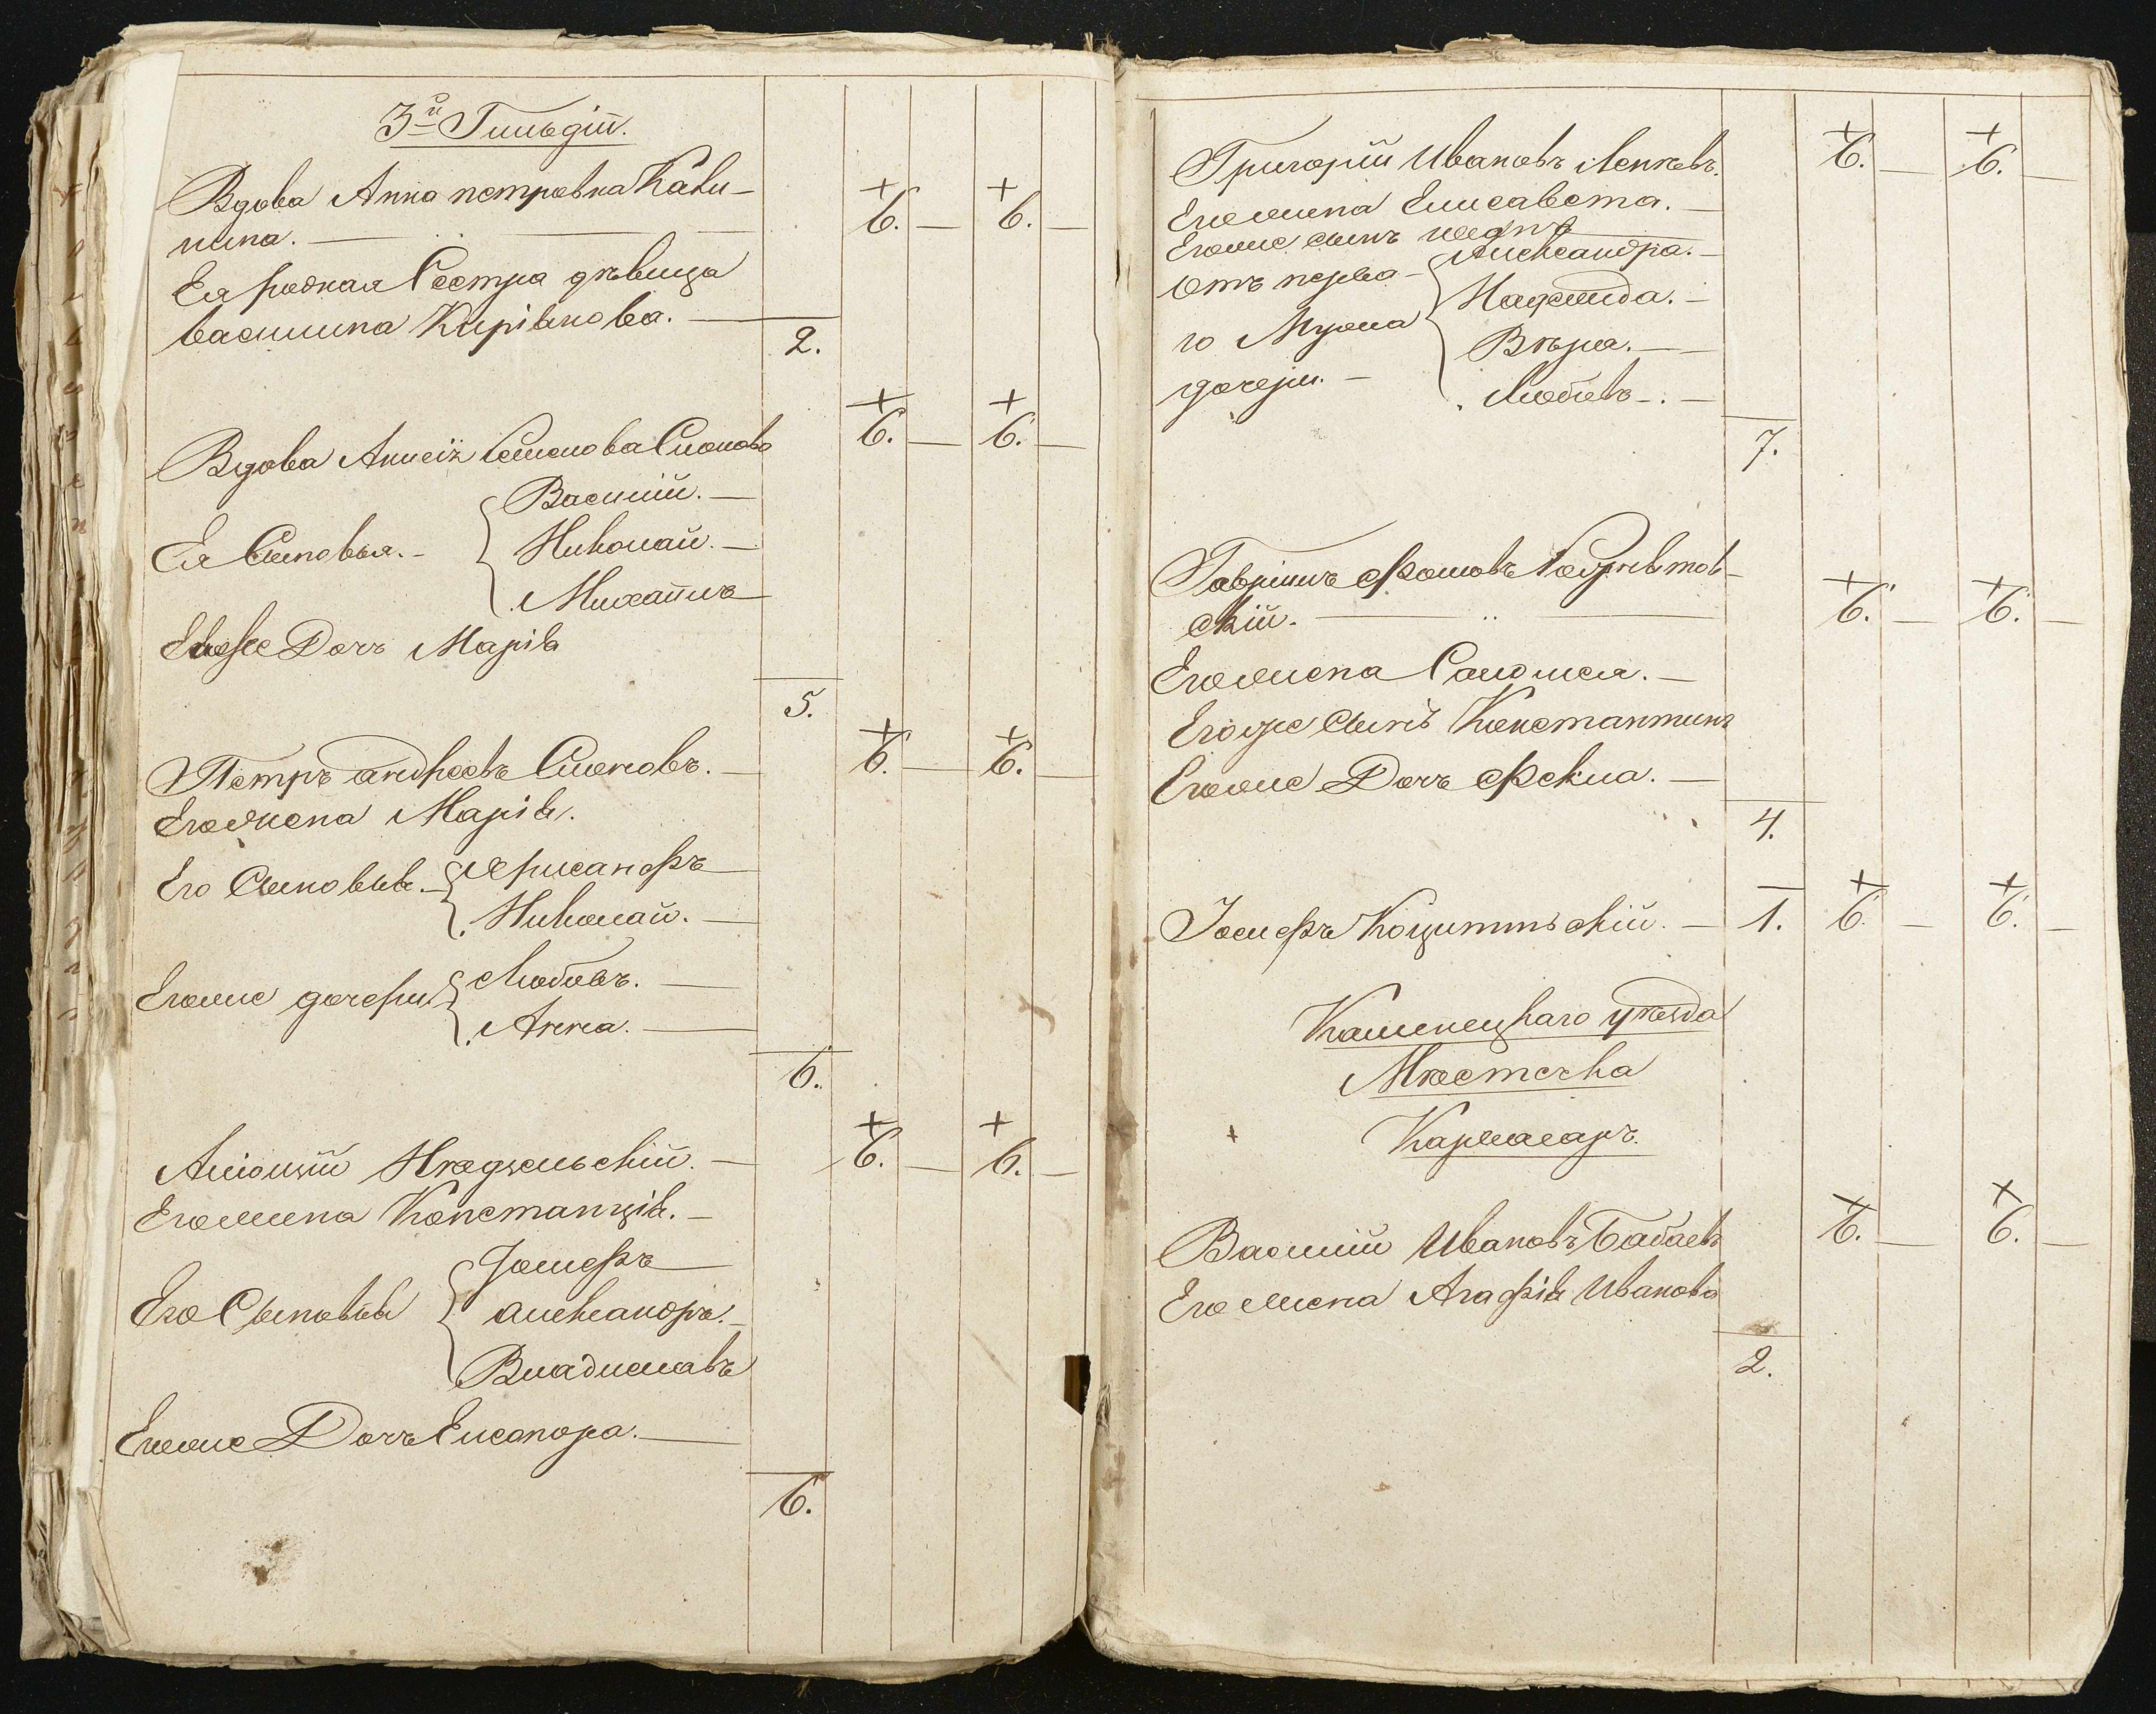 3й Гильдіи.
Вдова Анна петровна Кали-
нина.
Ея родная Сестра дѣвица
василина Киріянова.
2.
6. 6.
Вдова Семенова Слонова
6. 6.
Ея Сыновья.
Василій.
Николай.
Михаилъ
Еяже Дочь Марія
5.
Петръ андреевъ Слоновъ.
6. 6.
Егожена Марія.
Его Сыновья.
Хрисанфъ
Николай.
Егоже дочери
Любовь.
Анна.
6.
Алоизій Нѣдзельскій.
6. 6.
Егожена Констанція.
Его Сыновья
Іосифъ
александръ.
Владиславъ
Егоже Дочь Елеонора.
6.
Григорій Ивановъ
6. 6.
Егожена Елисавета.
Егоже сынъ
Отъ перва-
го Мужа
дочери.
Александра.
Надежда.
Вѣра.
Любовь.
7.
Гавріилъ Фоминъ
скій.
6. 6.
Егожена Саломея.
Егоже Сынъ Константинъ
Егоже Дочь Фекла.
4.
Іосифъ 1. 6. 6.
Каменецкаго уѣзда
Мѣстечка
Жармаларъ.
Василій Ивановъ Бабаевъ
6. 6.
Его жена Агафія Иванова
2.